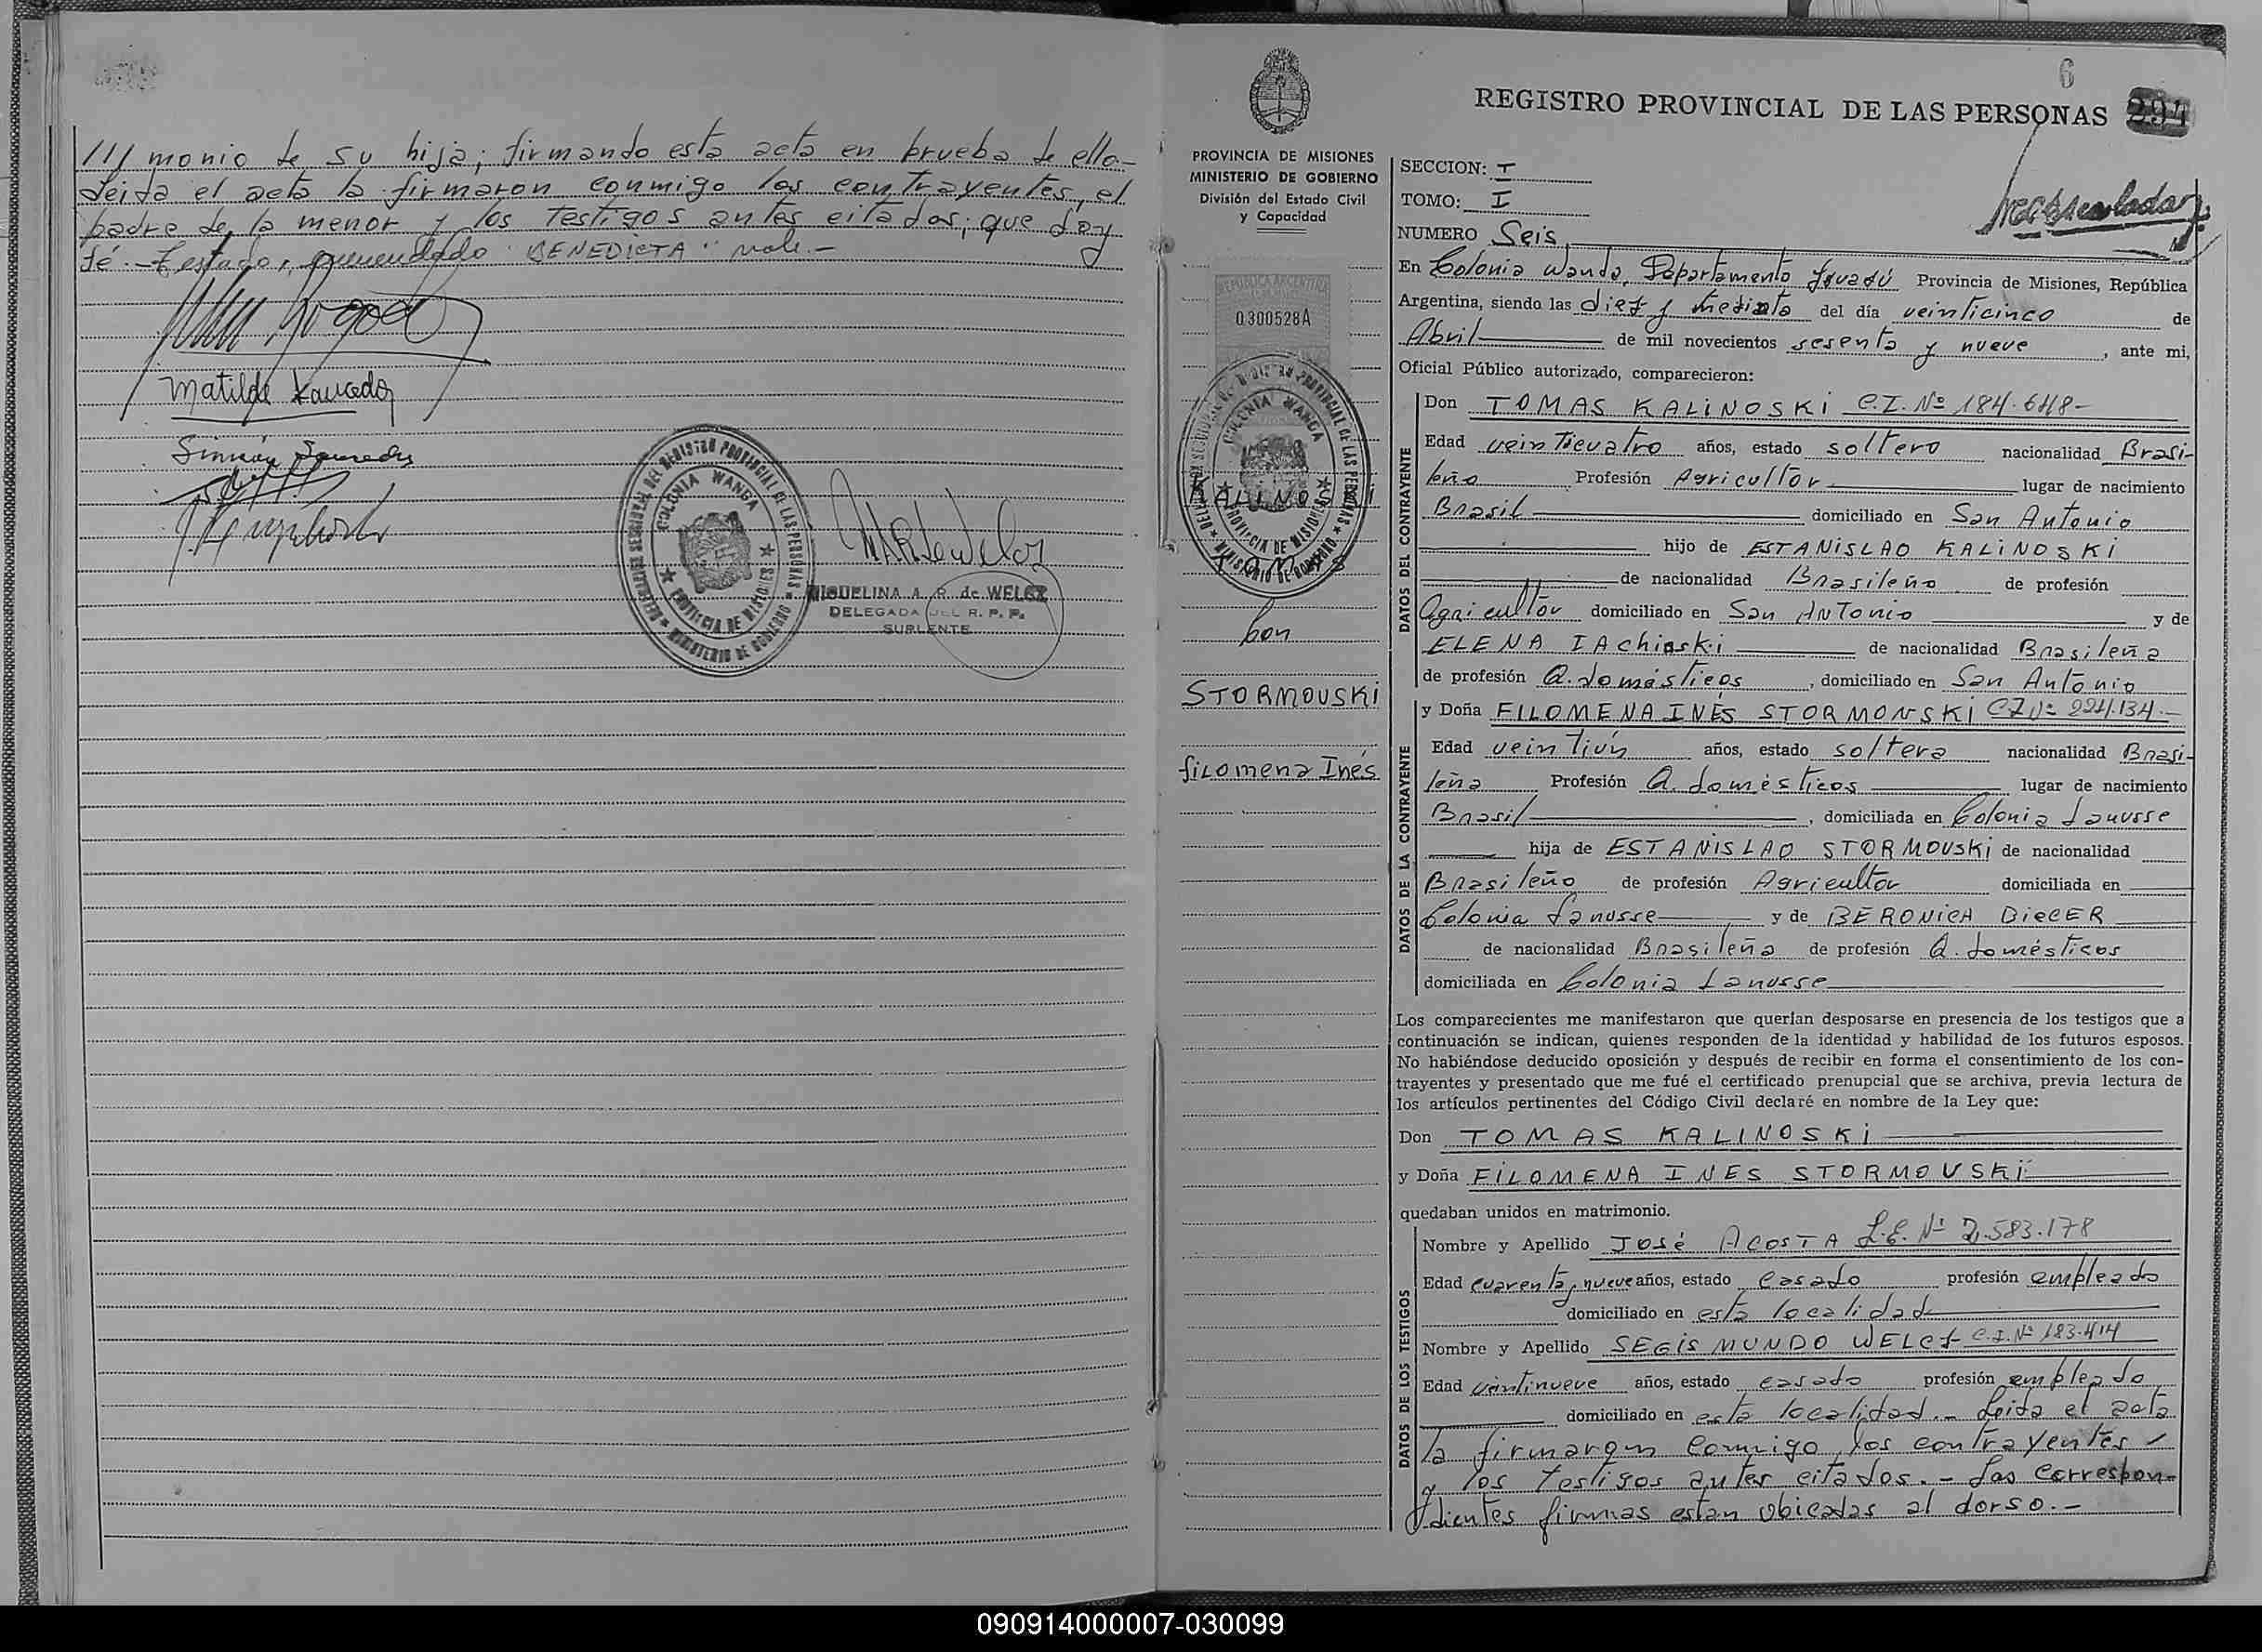 /// monio de su hija; firmando esta acta en prueba de ello.-
Leida el acta la firmaron conmigo los contrayentes, el
padre de la menor y los testigos antes citados; que doy
fé.- Testado, enmendado "BENEDICTA" vale.-
Matilde
Simeón
COLONIA WANDA
PROVINCIA DE MISIONES
MIGUELINA A. R. de WELCZ
DELEGADA DEL R. P. P.
SUPLENTE
6
REGISTRO PROVINCIAL DE LAS PERSONAS 294
PROVINCIA DE MISIONES
MINISTERIO DE GOBIERNO
División del Estado Civil
y Capacidad
REPUBLICA ARGENTINA
0300528A
COLONIA WANDA
PROVINCIA DE MISIONES
KALINOSKI
TOMAS
Con
STORMOUSKI
filomena Inés
SECCION: I
TOMO: I
NUMERO Seis
En Colonia Wanda, Departamento Iguazú Provincia de Misiones, República
Argentina, siendo las diez y media del día veinticinco de
Abril de mil novecientos sesenta y nueve, ante mi,
Oficial Público autorizado, comparecieron:
DATOS DEL CONTRAYENTE
Don TOMAS KALINOSKI C.I. Nº 184.648-
Edad veinticuatro años, estado soltero nacionalidad Brasi-
leña Profesión Agricultor lugar de nacimiento
Brasil domiciliado en San Antonio
hijo de ESTANISLAO KALINOSKI
de nacionalidad Brasileño de profesión
Agricultor domiciliado en San ANTonio y de
ELENA IAchinski de nacionalidad Brasileña
de profesión Q. domésticos, domiciliado en San Antonio
DATOS DE LA CONTRAYENTE
y Doña FILOMENA INÉS STORMONSKI C I Nº 224.134.-
Edad veintiún años, estado soltera nacionalidad Brasi-
leña Profesión Q. domésticos lugar de nacimiento
Brasil, domiciliada en Colonia Lanusse
hija de ESTANISLAO STORMOUSKI de nacionalidad
Brasileño de profesión Agricultor domiciliada en
Colonia Lanusse y de BERONICA DIECER
de nacionalidad Brasileña de profesión Q. domésticos
domiciliada en Colonia Lanusse
Los comparecientes me manifestaron que querían desposarse en presencia de los testigos que a
continuación se indican, quienes responden de la identidad y habilidad de los futuros esposos.
No habiéndose deducido oposición y después de recibir en forma el consentimiento de los con-
trayentes y presentado que me fué el certificado prenupcial que se archiva, previa lectura de
los artículos pertinentes del Código Civil declaré en nombre de la Ley que:
Don TOMAS KALINOSKI
y Doña FILOMENA INES STORMOUSKI
quedaban unidos en matrimonio.
DATOS DE LOS TESTIGOS
Nombre y Apellido JOSÉ ACOSTA L.E. Nº 2.583.178
Edad cuarenta y nueve años, estado casado profesión empleado
domiciliado en esta localidad
Nombre y Apellido SEGISMUNDO WELCZ C.I. Nº 183.414
Edad veintinueve años, estado casado profesión empleado
domiciliado en esta localidad.- Leida el acta
la firmaron conmigo los contrayentes
y los testigos antes citados.- Las correspon-
dientes firmas estan ubicadas al dorso.-
090914000007-030099